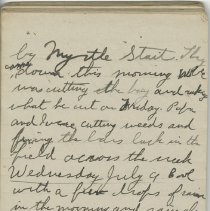 by Myrtle Start. They
came down this morning
was cutting the hay and raking
what he cut on Friday. Papa
and Grace cutting weeds and
fixing the bars back in the
field across the creek
Wednesday, July 9
with a few drops of rain
in the morning and